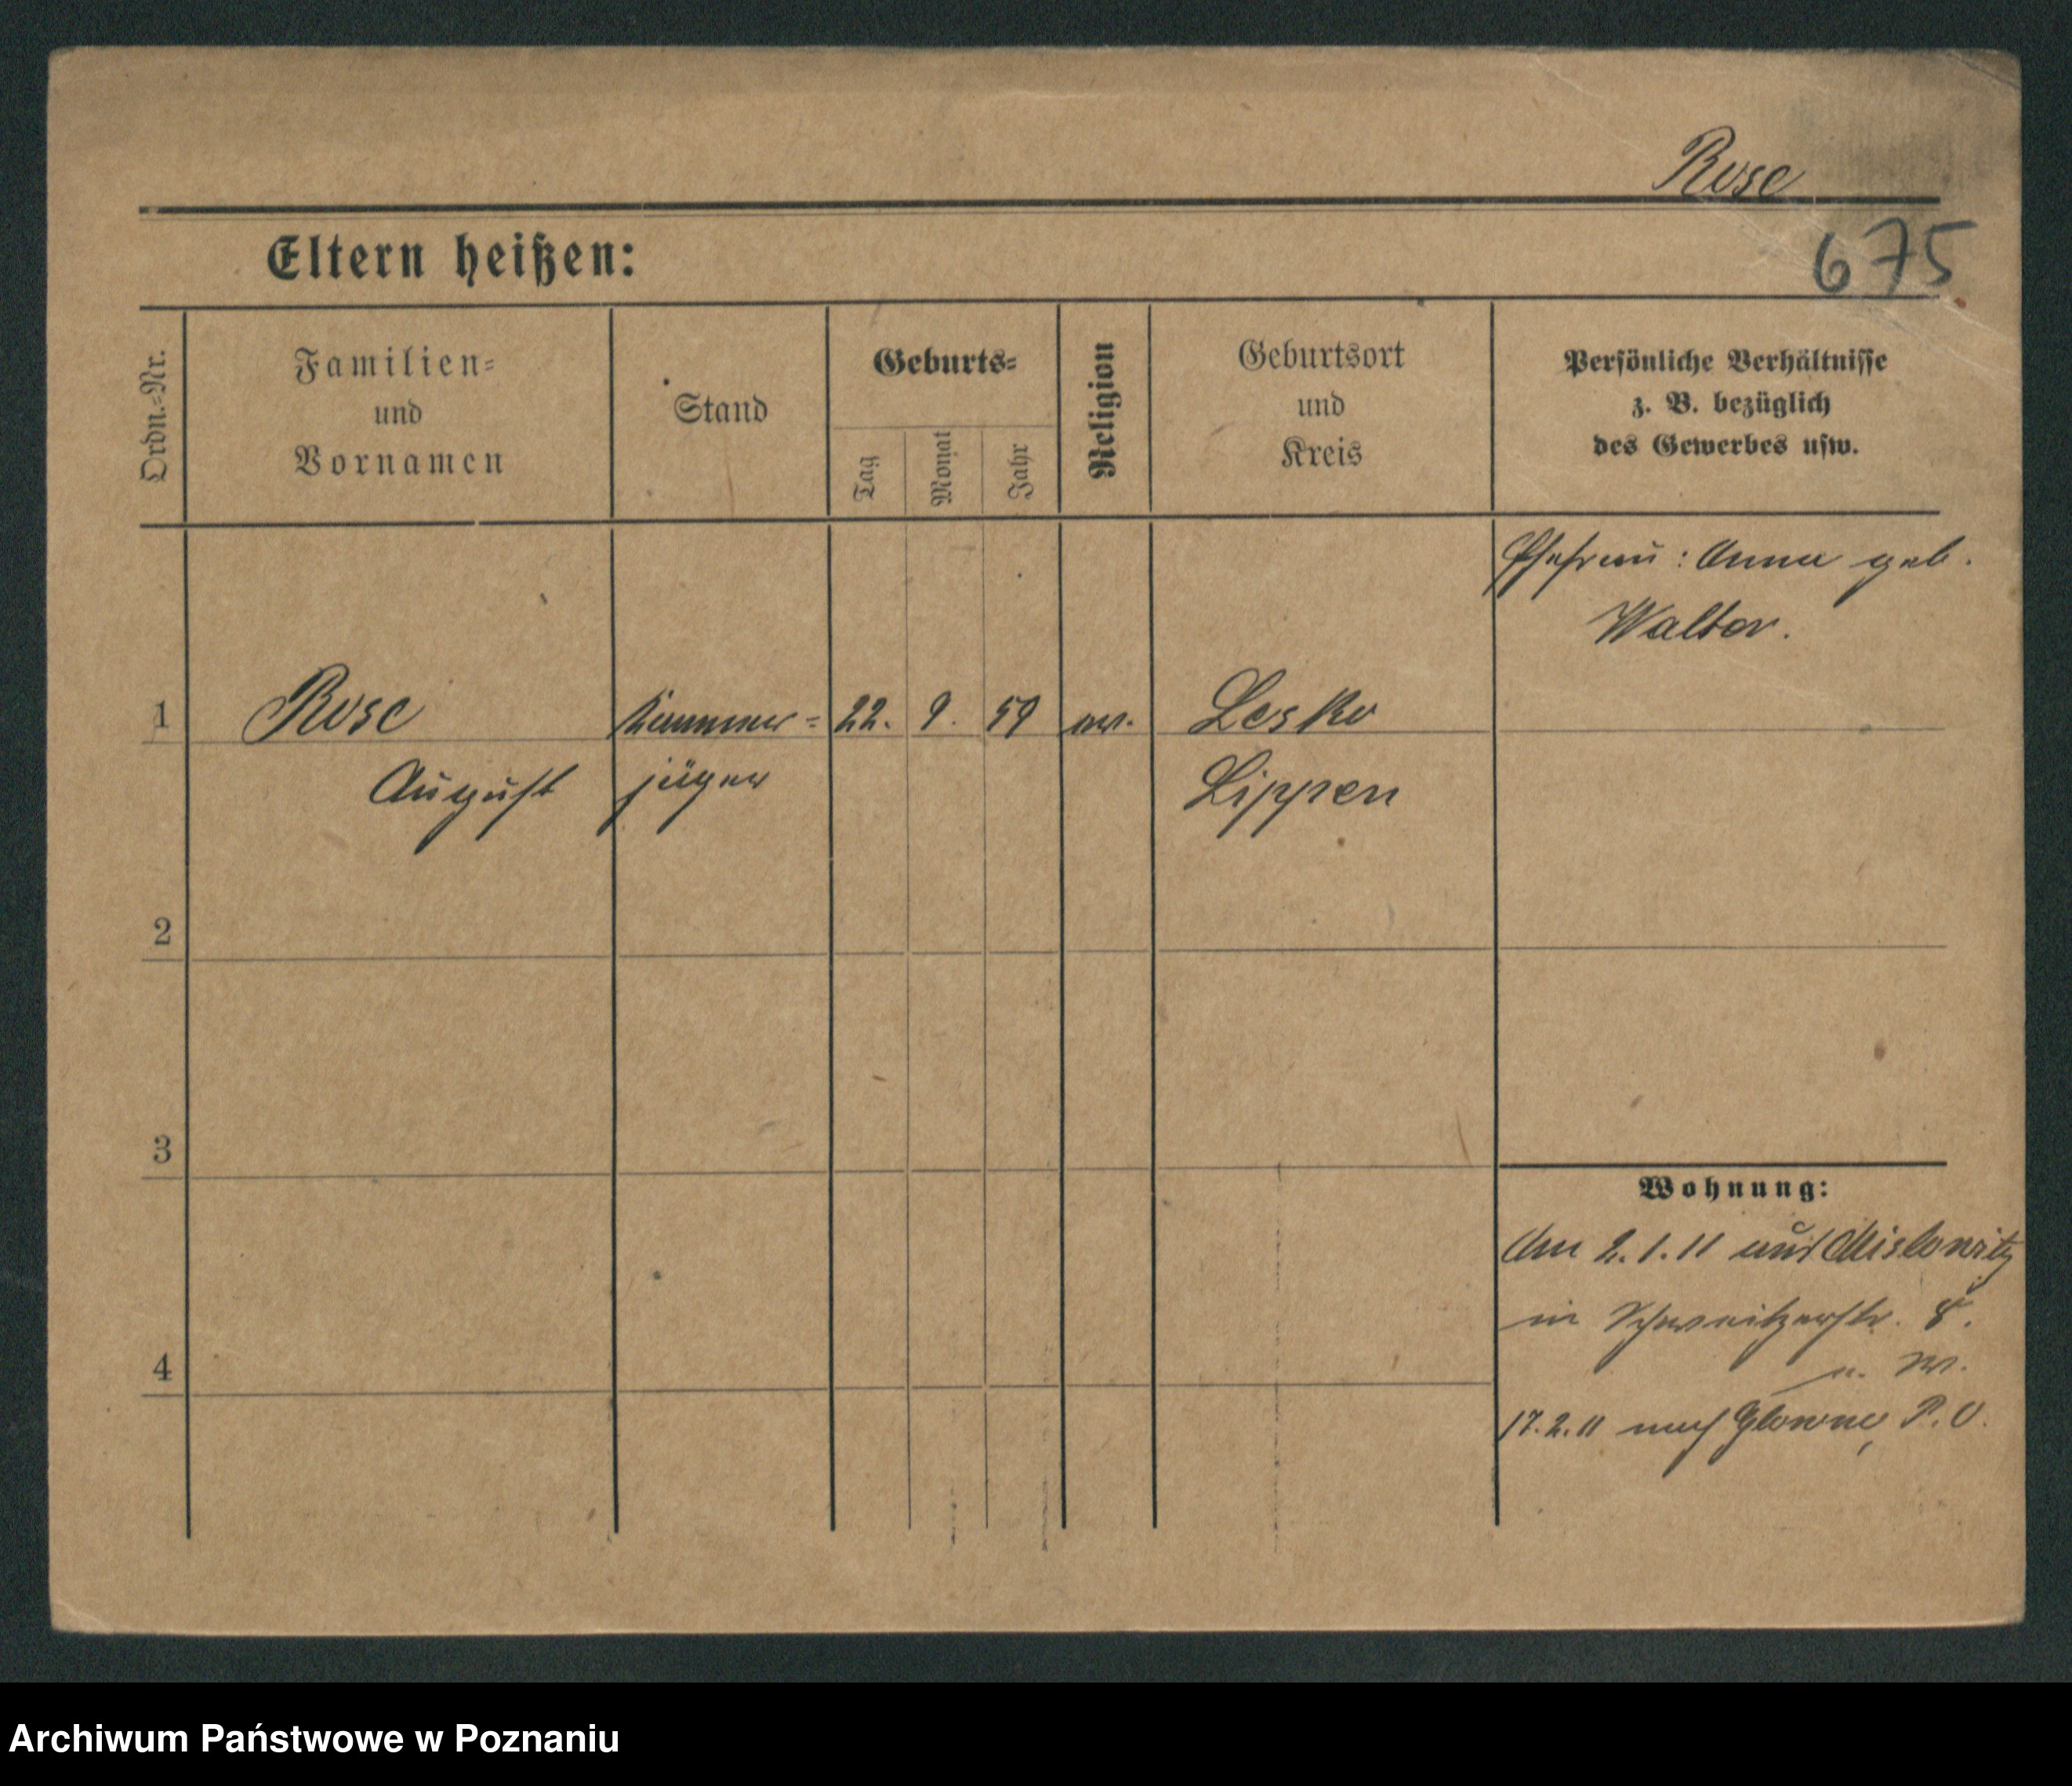 Rose
Eltern heißen:
675
Ordn.-Nr.
Familien-
und
Vornamen
Stand
Geburts-
Tag
Monat
Jahr
Religion
Geburtsort
und
Kreis
Persönliche Verhältnisse
z. B. bezüglich
des Gewerbes usw.
Ehefrau: Anna geb.
Walter.
1 Rose Kammer- 22. 9. 59 ev. Lesko
August jäger Lippen
2
3
4
Wohnung:
Am 2.1.11 aus Mislowitz
in Schweitzerstr. 8.
17.2.11 nach Glowno, P. O.
Archiwum Państwowe w Poznaniu